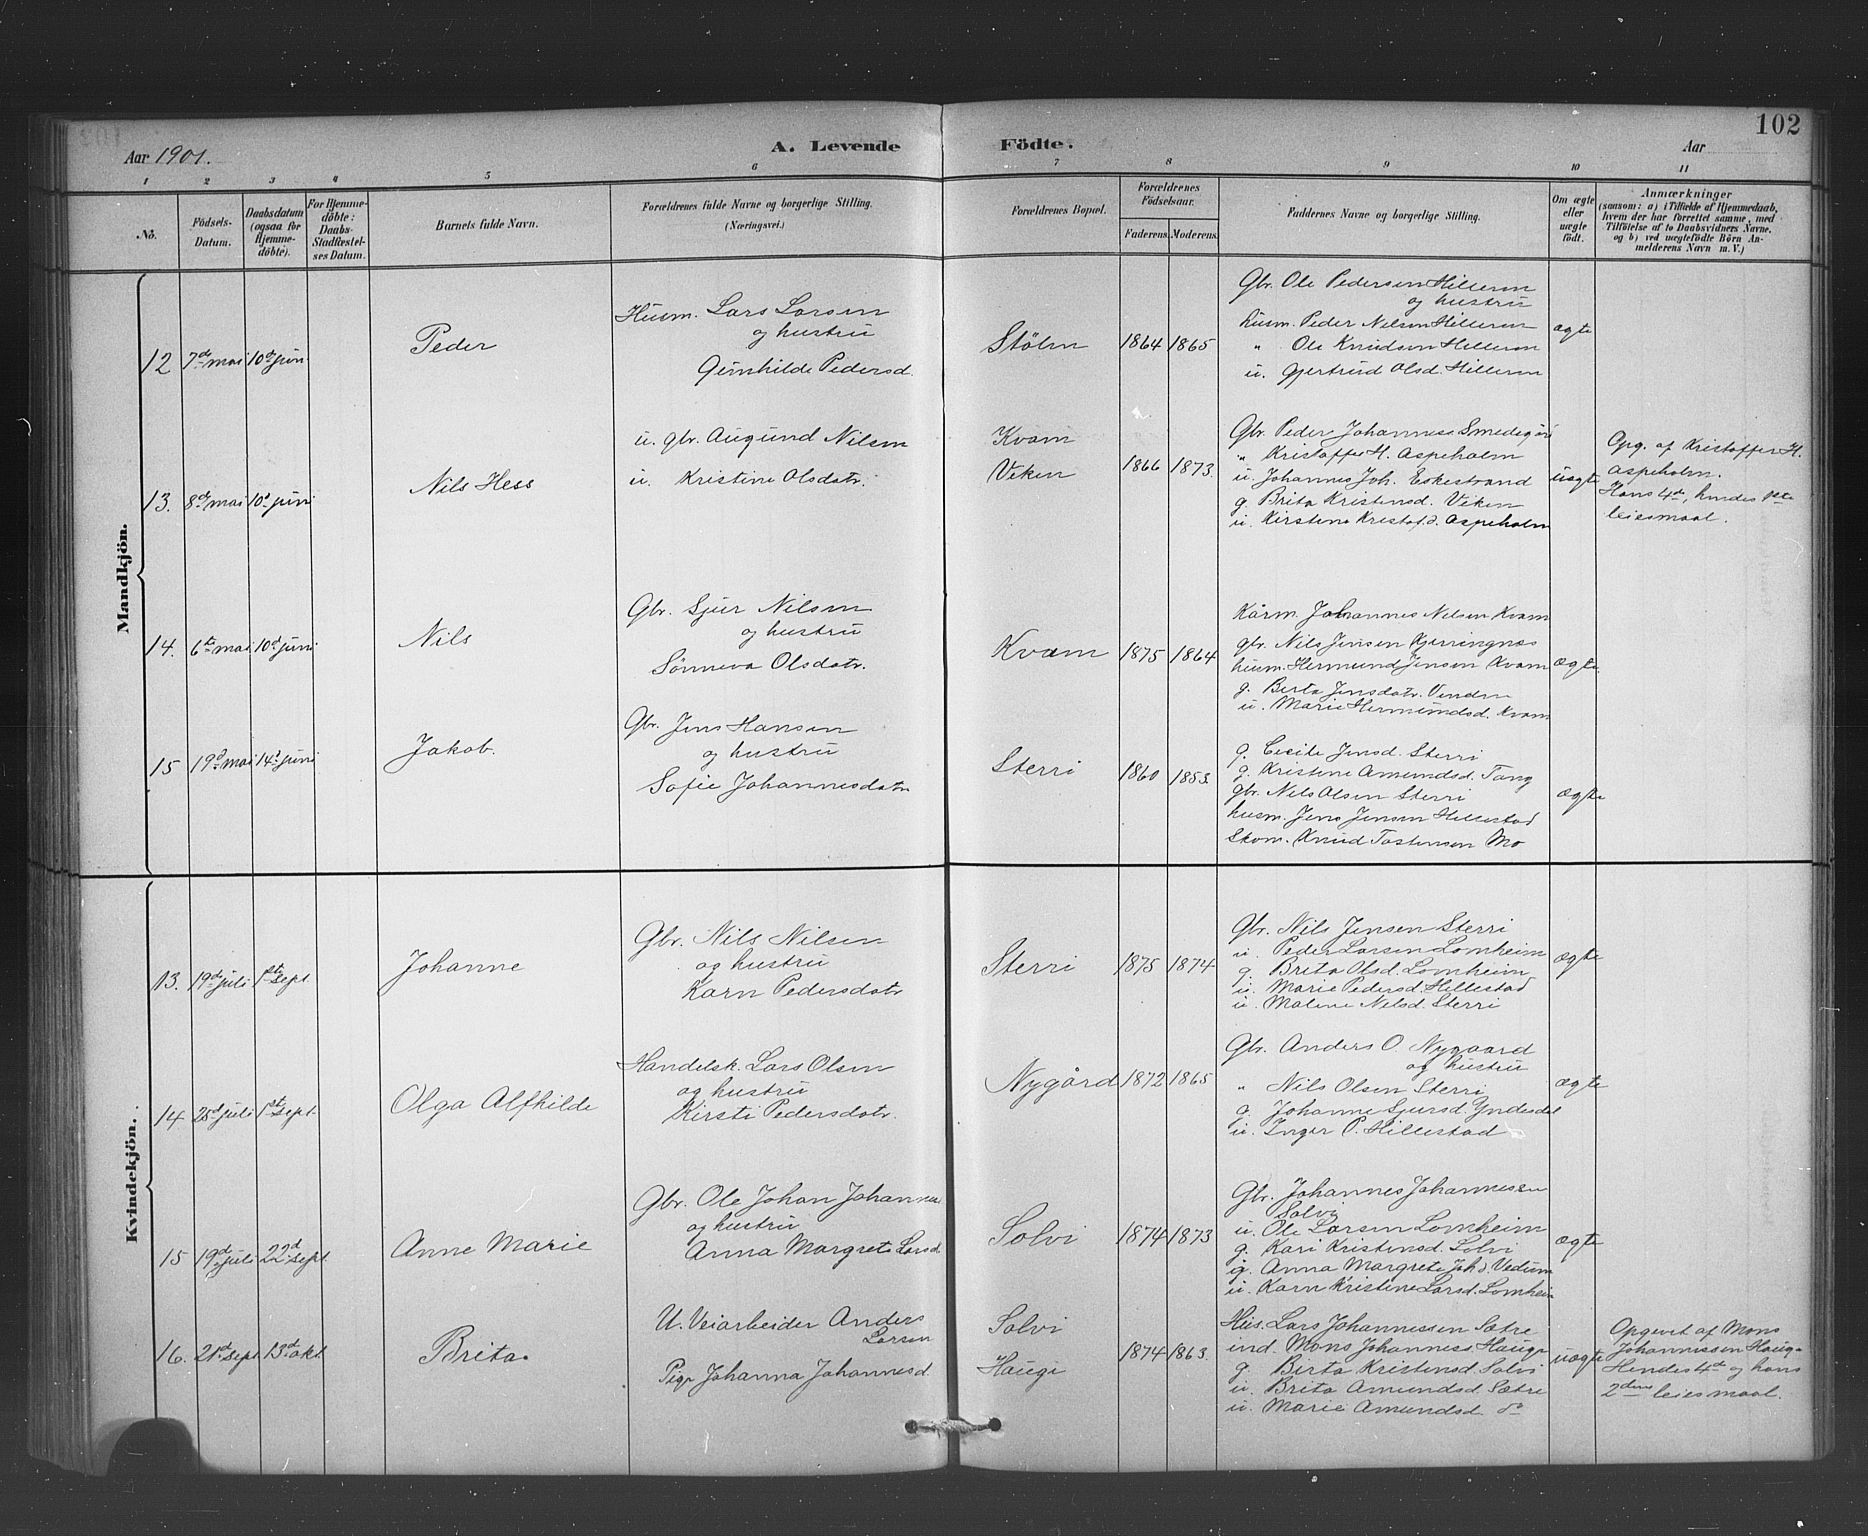 102
Aar 1901.
A. Levende Födte.
Aar
1 2 3 4 5 6 7 8 9 10 11
No.
Födsels-Datum.
Daabsdatum (ogsaa for Hjemme-döbte).
For Hjemme-döbte: Daabs-Stadfæstel-ses Datum.
Barnets fulde Navn.
Forældrenes fulde Navne og borgerlige Stilling.
(Næringsvei.)
Forældrenes Bopæl.
Forældrenes Födselsaar.
Faderens. Moderens.
Faddernes Navne og borgerlige Stilling.
Om ægte eller uægte födt.
Anmærkninger
(saasom: a) i Tilfælde af Hjemmedaab, hvem der har forrettet samme, med Tilföielse af to Daabsvidners Navne, og b) ved uægtefödte Börn An-melderens Navn m. V.)
Mandkjön.
12 7de mai 10de juni
Peder
Husm. Lars Larsen
og hustru
Gunhilde Pedersd.
Stölen
1864 1865
Gbr. Ole Pedersen Hilleren
og hustru
husm. Peder Nilsen Hilleren
" Ole Knudsen Hilleren
u. Gjertrud Olsd. Hilleren
ægte
13. 8de mai 10d juni
Nils Hess
u. gbr. Augund Nilsen
u. Kristine Olsdatr.
Kvam
Veken
1866 1873.
Gbr. Peder Johanness Smedegård
" Kristoffer H. Aspeholm
u. Johannes Joh. Eskestrand
g. Brita Kristensd. Veken
u. Kirstine Kristofd. Aspeholm
uægte
Opg. af Kristoffer H.
Aspeholm.
Hans 4de, hendes 1ste
leiesmaal.
14. 6te mai 10d juni
Nils
Gbr. Sjur Nilsen
og hustru
Sönneva Olsdatr.
Kvam
1875 1864
Kårm. Johannes Nilsen Kvam
gbr. Nils Jensen Kjerringnes
husm. Hermund Jensen Kvam
g. Berta Jensdatr. Venden
u. Marie Hermundsd. Kvam
ægte
15 19d mai 14d juni
Jakob.
Gbr. Jens Hansen
og hustru
Sofie Johannesdatr
Sterri
1860 1853.
g. Cecile Jensd. Sterri
g. Kristine Amundsd. Tang
gbr. Nils Olsen Sterri
husm. Jens Jensen Hillestad
Skom. Knud Tostensen Mo
ægte
Kvindekjön.
13. 19de juli 1ste sept.
Johanne
Gbr. Nils Nilsen
og hustru
Karn Pedersdatr
Sterri
1875 1874
Gbr. Nils Jensen Sterri
u. Peder Larsen Lomheim
g. Brita Olsd. Lomheim
u. Marie Pedersd. Hillestad
u. Malene Nilsd. Sterri
ægte
14 28d juli 1ste sept.
Olga Alfhilde
Handelsk. Lars Olsen
og hustru
Kirsti Pedersdatr.
Nygård
1872 1865
Gbr. Anders O. Nygaard
og hustru
" Nils Olsen Sterri
g. Johanne Sjursd. Yndesdal
u. Inger P. Hillestad
ægte
15 19d juli 22d sept.
Anne Marie
Gbr. Ole Johan Johannes
og hustru
Anna Margrete Larsd.
Solvi
1874 1873
Gbr. Johannes Johannessen
Solvi
u. Ole Larsen Lomheim
g. Kari Kristensd. Solvi
g. Anna Margrete Joh.d. Vedum
u. Karn Kristine Larsd. Lomheim
ægte
16. 21d sept. 13d okt.
Brita.
U. Veiarbeider Anders
Larsen
Pige Johanna Johannesd
Solvi
Haugi
1874 1863.
Hus. Lars Johannessen Sætre
ind. Mons Johanness. Haugi
g. Birta Kristensd. Solvi
u. Brita Amundsd. Sætre
u. Marie Amundsd. do
uægte
Opgevet af Mons
Johannessen Haugi
Hendes 4de og hans
2den leiesmaal.